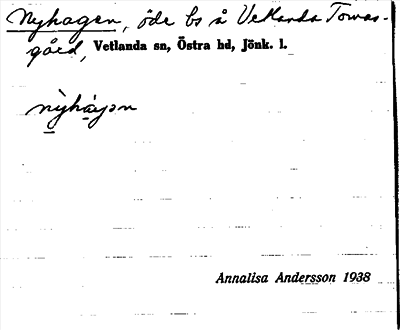 Nyhagen, öde bs å Vetlanda Tomas-
gård, Vetlanda sn, Östra hd, Jönk. l.
nỳhàgən
Annalisa Andersson 1938